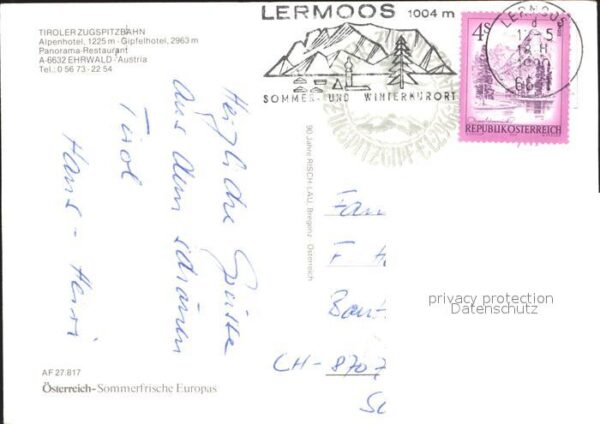 TIROLER ZUGSPITZBAHN
Alpenhotel, 1225 m - Gipfelhotel, 2963 m
Panorama-Restaurant
A-6632 EHRWALD - Austria
Tel.: 0 56 73 - 22 54
LERMOOS 1004 m
SOMMER- UND WINTERKURORT
LERMOOS
12.-5
18 H
1990
6631
4 S
REPUBLIK ÖSTERREICH
ZUGSPITZGIPFEL 296
Herzliche Grüsse
aus dem schönen
Tirol
Hans - Heiri
90 Jahre RISCH-LAU, Bregenz Österreich
Fam
F
CH-8707
privacy protection
Datenschutz
AF 27.817
Österreich-Sommerfrische Europas